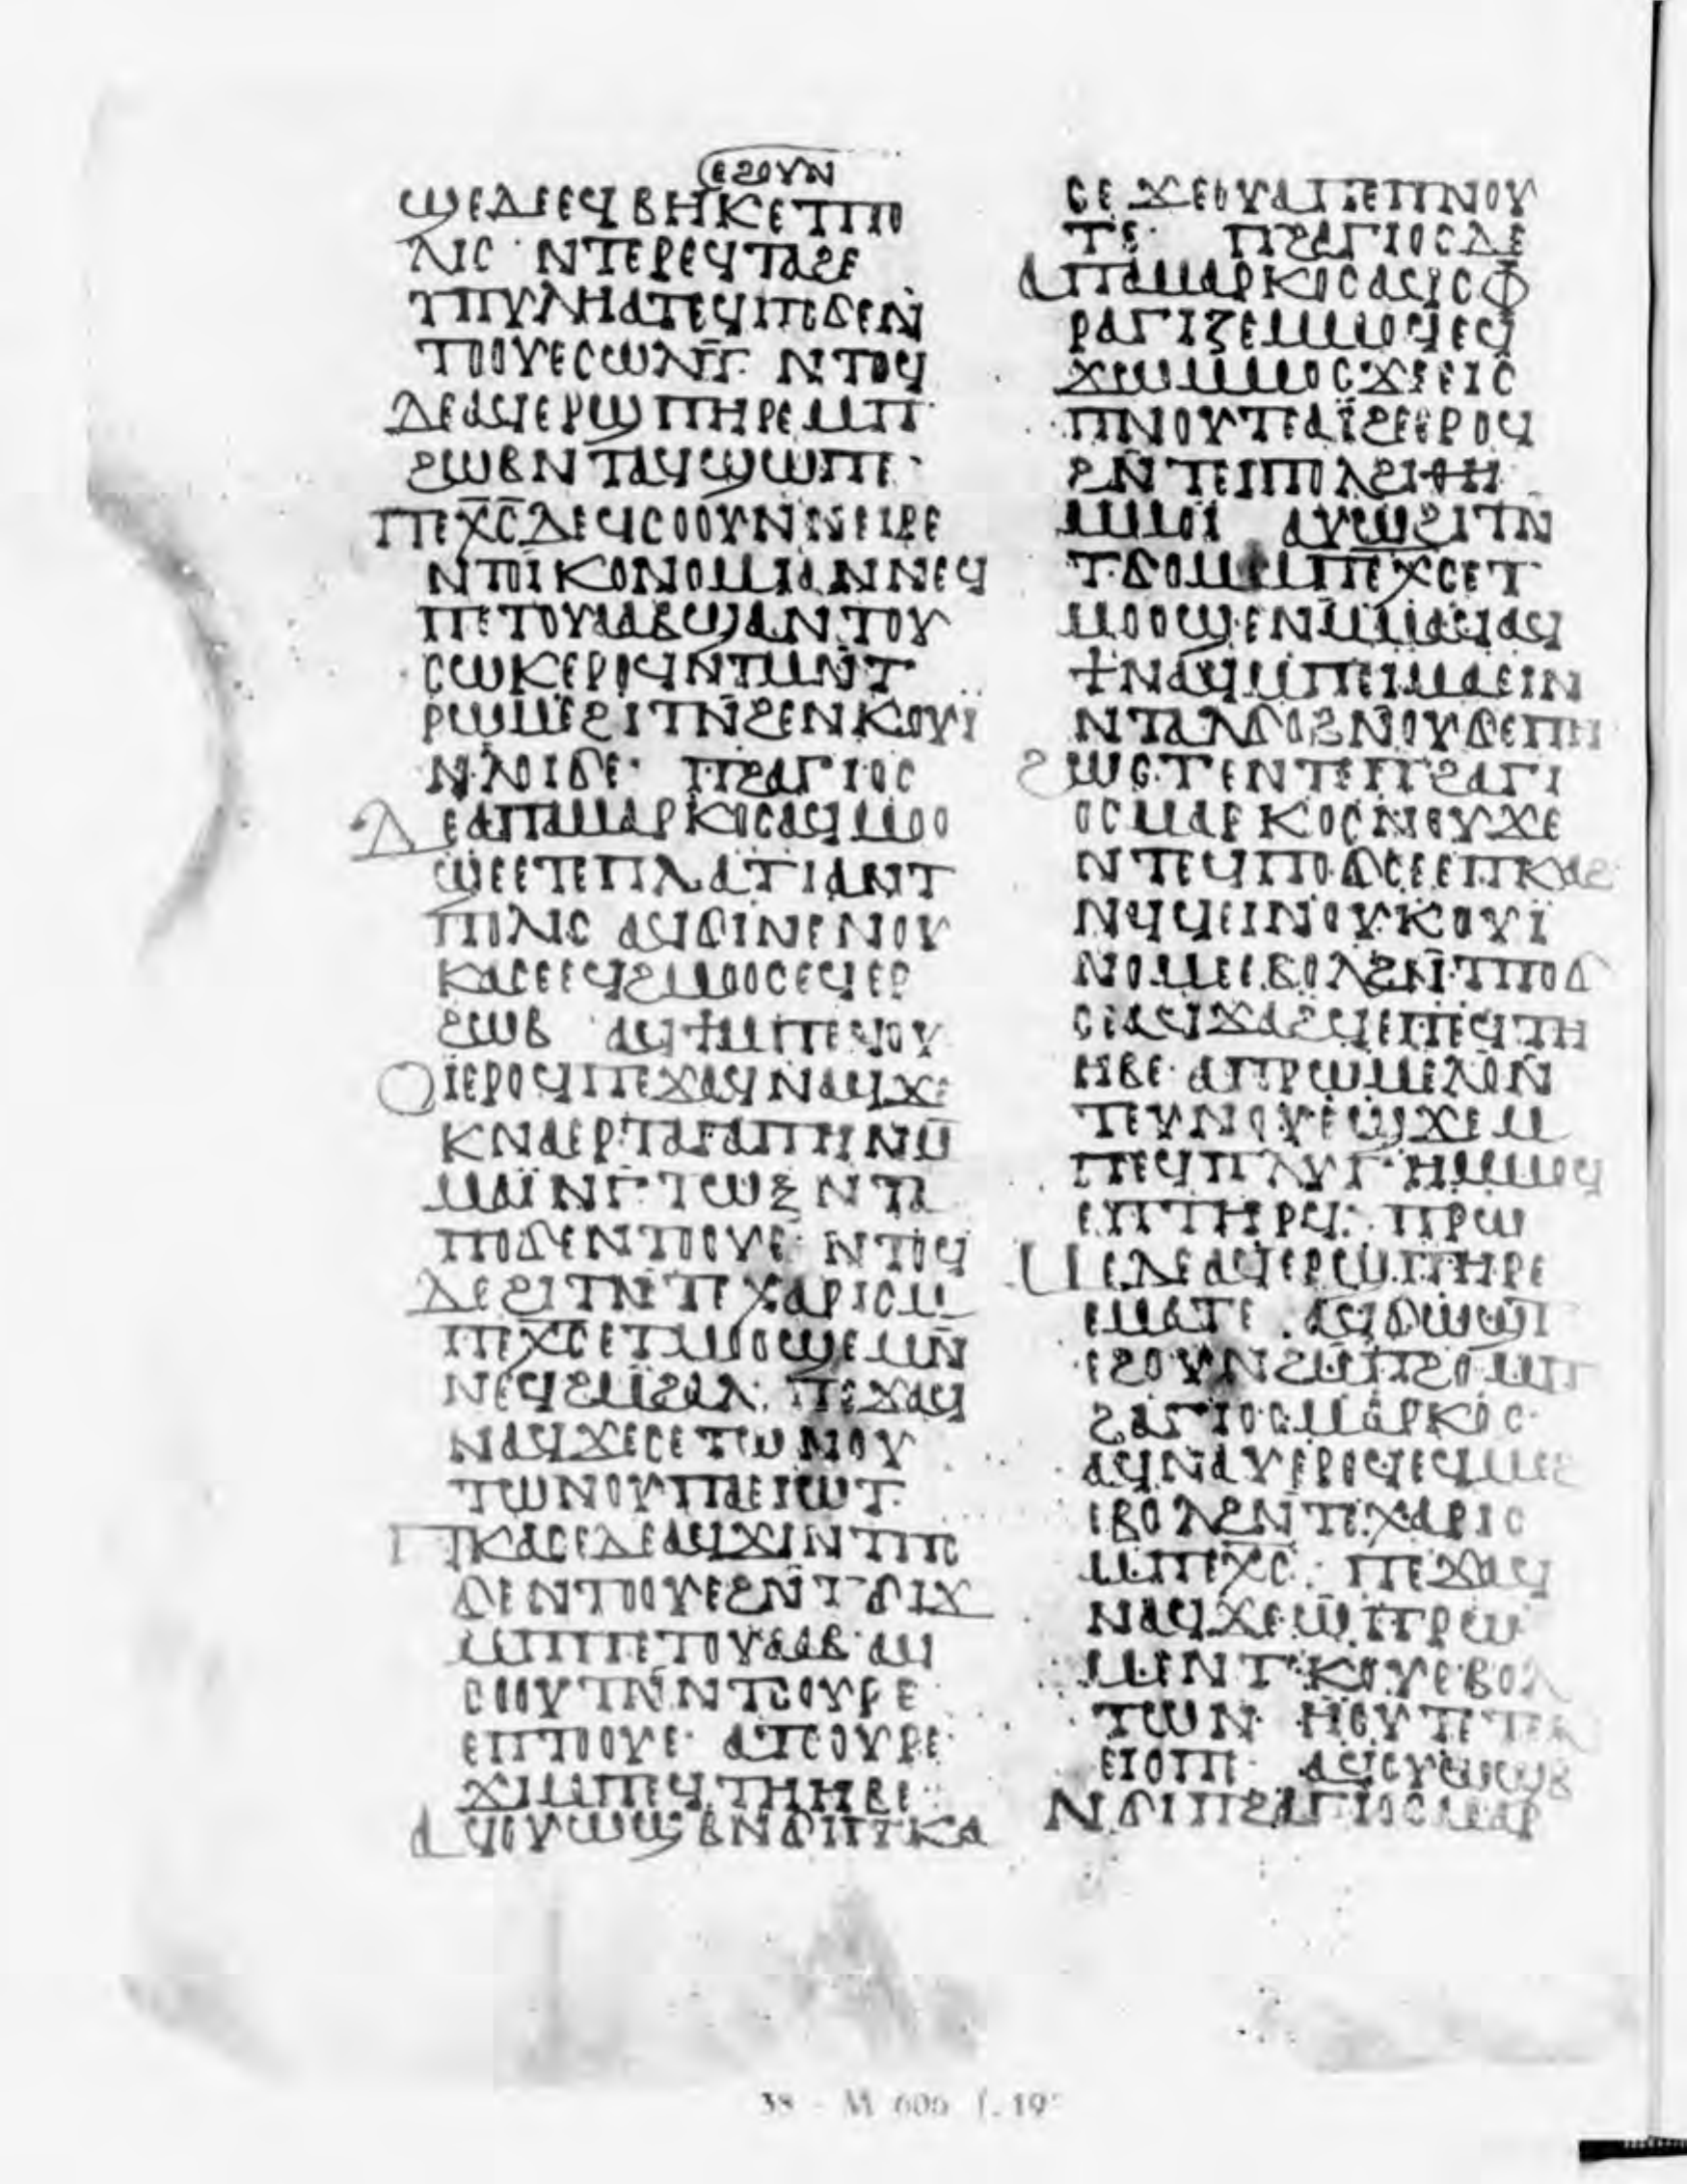 ⲉϩⲟⲩⲛ
ϣⲉⲇⲉⲉϥⲃⲏⲕⲉⲧⲡⲟ
ⲗⲓⲥ ⲛⲧⲉⲣⲉϥⲧⲁϩⲉ
ⲧⲡⲩⲗⲏⲁⲡⲉϥⲡⲟϭⲉⲛ
ⲧⲟⲟⲩⲉⲥⲱⲗⲡ̄· ⲛⲧⲟϥ
ⲇⲉⲁϥⲉⲣϣⲡⲏⲣⲉⲙⲡ
ϩⲱⲃⲛⲧⲁϥϣⲱⲡⲉ·
ⲡⲉⲭ̄ⲥ̄ⲇⲉϥⲥⲟⲟⲩⲛⲛⲉⲓⲣⲉ
ⲛⲧⲟⲓⲕⲟⲛⲟⲙⲓⲁⲛⲛⲉϥ
ⲡⲉⲧⲟⲩⲁⲁⲃϣⲁⲛⲧⲟⲩ
ⲥⲱⲕⲉⲣⲟϥⲛⲧⲙⲛⲧ
ⲣⲱⲙⲉϩⲓⲧⲛϩⲉⲛⲕⲟⲩⲓ
ⲛⲗⲟⲓϭⲉ· ⲡϩⲁⲅⲓⲟⲥ
ⲇⲉⲁⲡⲁⲙⲁⲣⲕⲟⲥⲁϥⲙⲟⲟ
ϣⲉⲉⲧⲉⲡⲗⲁⲧⲓⲁⲛⲧ
ⲡⲟⲗⲓⲥ ⲁϥϭⲓⲛⲉⲛⲟⲩ
ⲕⲁⲥⲉⲉϥϩⲙⲟⲟⲥⲉϥⲉⲣ
ϩⲱⲃ ⲁϥϯⲙⲡⲉϥⲟⲩ
ⲟⲓⲉⲣⲟϥⲡⲉϫⲁϥⲛⲁϥϫⲉ
ⲕⲛⲁⲉⲣⲧⲁⲅⲁⲡⲏⲛⲙ̄
ⲙⲁⲓ̈ⲛⲅⲧⲱϩⲛⲡⲁ
ⲡⲟϭⲉⲛⲧⲟⲟⲩⲉ· ⲛⲧⲟϥ
ⲇⲉϩⲓⲧⲛⲡⲉⲭⲁⲣⲓⲥⲙ
ⲡⲉⲭⲥⲉⲧⲙⲟⲟϣⲉⲙⲛ̄
ⲛⲉϥϩⲙ̄ϩⲁⲗ· ⲡⲉϫⲁϥ
ⲛⲁϥϫⲉⲥⲉⲧⲱⲙⲟⲩ
ⲧⲱⲛⲟⲩⲡⲁⲉⲓⲱⲧ·
ⲡⲕⲁⲥⲉⲇⲉⲁϥϫⲓⲛⲧⲡⲟ
ϭⲉⲛⲧⲟⲟⲩⲉϩⲛ̄ⲧϭⲓϫ
ⲙⲡⲡⲉⲧⲟⲩⲁⲁⲃ· ⲁϥ
ⲥⲟⲟⲩⲧⲛⲛⲧⲥⲟⲩⲣⲉ
ⲉⲡⲧⲟⲟⲩⲉ· ⲁⲧⲥⲟⲩⲣⲉ
ϫⲓⲙⲡⲉϥⲧⲏⲏⲃⲉ·
ⲁϥⲟⲩⲱϣⲃⲛϭⲓⲡⲕⲁ
ⲥⲉ ϫⲉⲟⲩⲁⲡⲉⲡⲛⲟⲩ
ⲧⲉ· ⲡϩⲁⲅⲓⲟⲥⲇⲉ
ⲁⲡⲁⲙⲁⲣⲕⲟⲥⲁϥⲥⲫ
ⲣⲁⲅⲓⲍⲉⲙⲙⲟϥⲉϥ
ϫⲱⲙⲙⲟⲥϫⲉⲉⲓⲥ
ⲡⲛⲟⲩⲧⲉⲁⲓ̈ϩⲉⲉⲣⲟϥ
ϩⲛ̄ⲧⲉⲓⲡⲟⲗⲉⲓϩⲏ
ⲙⲙⲟⲓ̈ ⲁⲩⲱϩⲓⲧⲛ
ⲧϭⲟⲙⲙⲡⲉⲭⲥⲉⲧ
ⲙⲟⲟϣⲉⲛⲙⲙⲁϥⲁϥ
ϯⲛⲁϥⲙⲡⲉⲓⲙⲁⲉⲓⲛ
ⲛⲧⲁⲗϭⲟϩⲛⲟⲩϭⲉⲡⲏ
ϩⲱⲥⲧⲉⲛⲧⲉⲡϩⲁⲅⲓ
ⲟⲥⲙⲁⲣⲕⲟⲥⲛⲟⲩϫⲉ
ⲛⲧⲉϥⲡⲟϭⲥⲉⲉⲡⲕⲁϩ
ⲛϥϥⲉⲓⲛⲟⲩⲕⲟⲩⲓ̈
ⲛⲟⲙⲉⲉⲃⲟⲗϩⲛ̄ⲧⲡⲟϭ
ⲥⲉⲁϥϫⲁϩϥⲉⲡⲉϥⲧⲏ
ⲏⲃⲉ· ⲁⲡⲣⲱⲙⲉⲗⲟ̄ⲛ̄
ⲧⲉⲩⲛⲟⲩⲉϣϫⲉⲙ
ⲡⲉϥⲡⲗⲩⲅⲏⲙⲙⲟϥ
ⲉⲡⲧⲏⲣϥ· ⲡⲣⲱ
ⲙⲉⲇⲉⲁϥⲉⲣϣⲡⲏⲣⲉ
ⲉⲙⲁⲧⲉ ⲁϥϭⲱϣⲧ
ⲉϩⲟⲩⲛϩⲙⲡϩⲟⲙⲡ
ϩⲁⲅⲓⲟⲥⲙⲁⲣⲕⲟⲥ·
ⲁϥⲛⲁⲩⲉⲣⲟϥⲉϥⲙⲉϩ
ⲉⲃⲟⲗϩⲛ̄ⲧⲉⲭⲁⲣⲓⲥ
ⲙⲡⲉⲭⲥ· ⲡⲉϫⲁϥ
ⲛⲁϥϫⲉⲱ̄ⲡⲣⲱ
ⲙⲉⲛⲧⲕⲟⲩⲉⲃⲟⲗ
ⲧⲱⲛ ⲏⲟⲩⲧⲉⲧⲉⲕ
ⲉⲓⲟⲡⲉ· ⲁϥⲟⲩⲱϣⲃ
ⲛϭⲓⲡϩⲁⲅⲓⲟⲥⲙⲁⲣ
38 - M 606 f. 19ᵛ